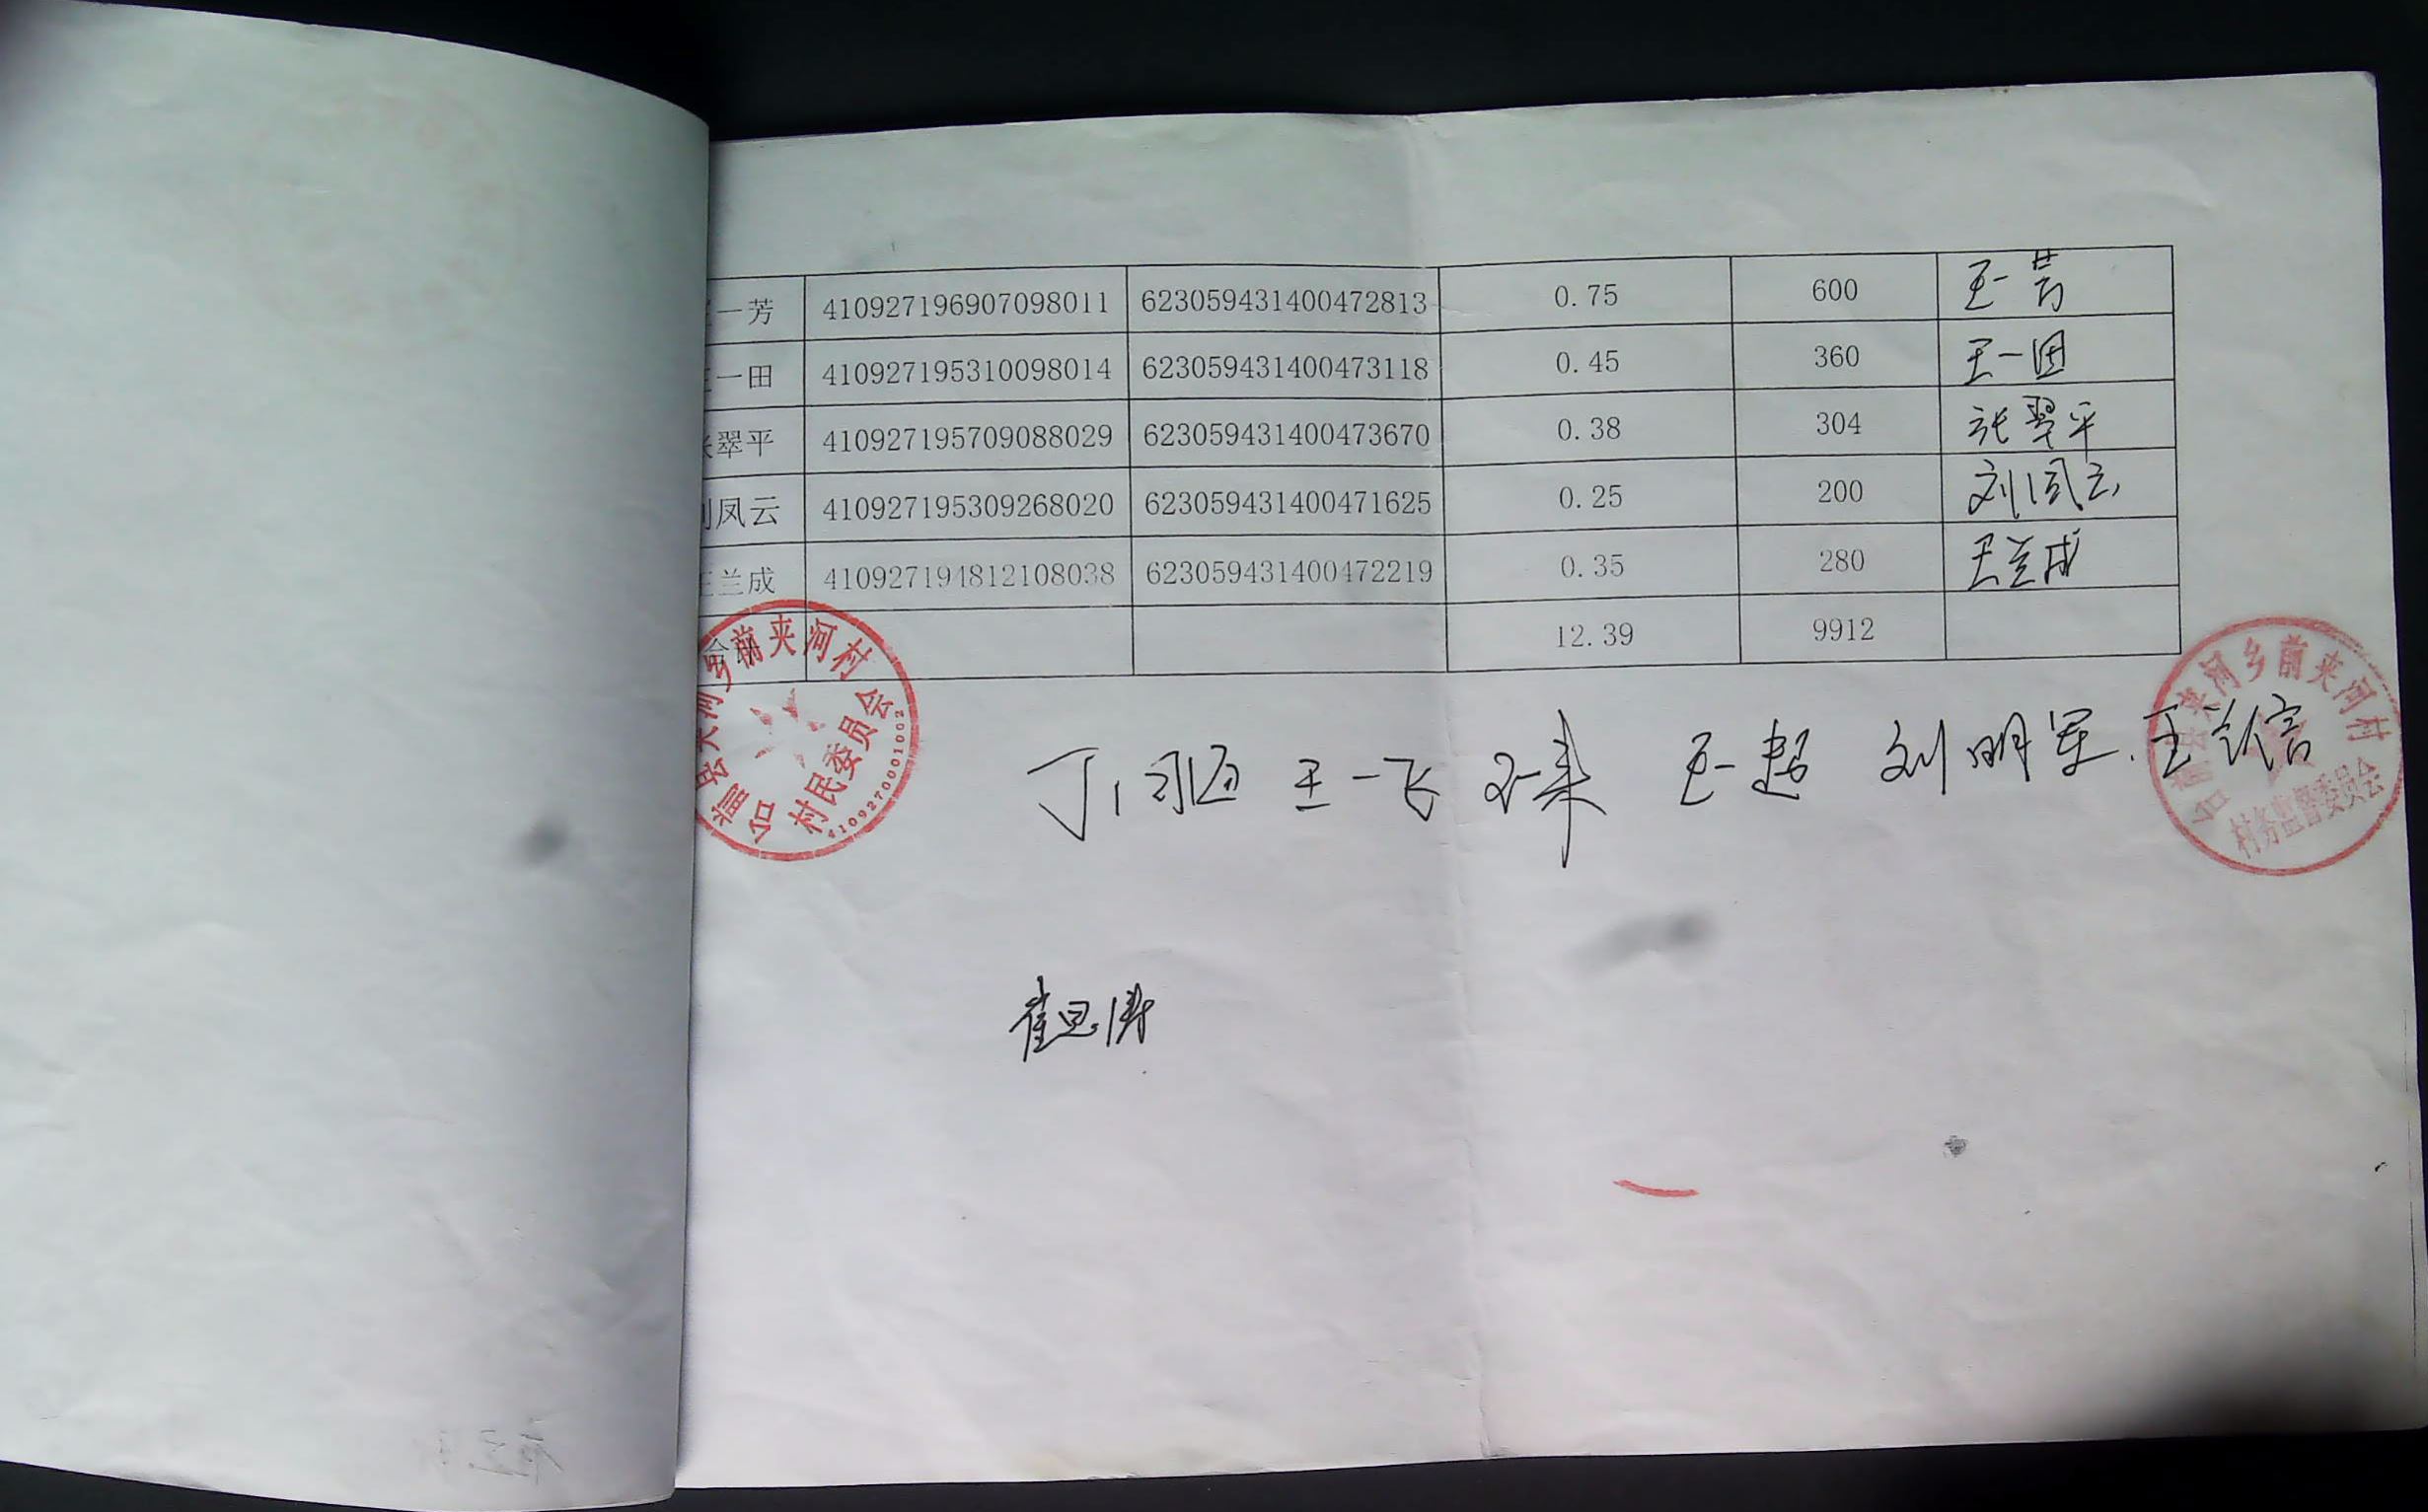 一芳 410927196907098011 623059431400472813 0.75 600 王一芳
一田 410927195310098014 623059431400473118 0.45 360 王一田
翠平 410927195709088029 623059431400473670 0.38 304 张翠平
刘凤云 410927195309268020 623059431400471625 0.25 200 刘凤云
王兰成 410927194812108038 623059431400472219 0.35 280 王兰成
合计 12.39 9912
台前县夹河乡前夹河村
村民委员会
4109270001002
夹河乡前夹河村
村务监督委员会
王一飞 王超 刘明军 王兰信
崔思涛